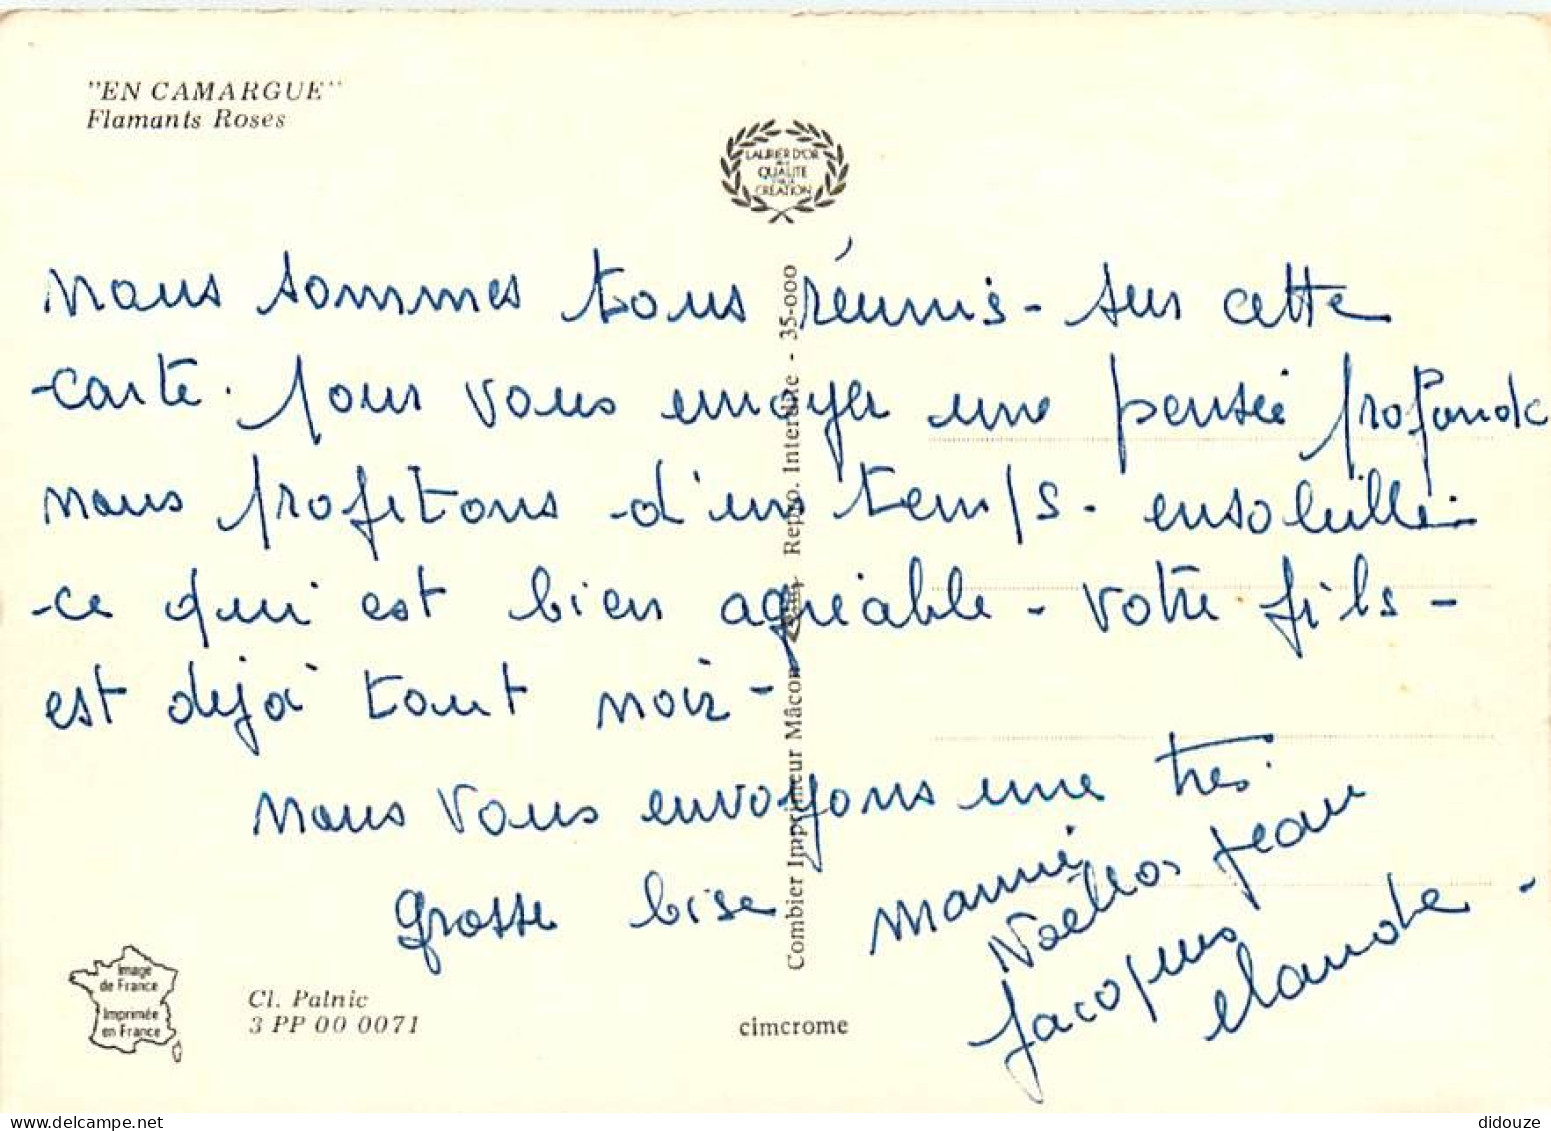 "EN CAMARGUE"
Flamants Roses
LAURIER D'OR
QUALITE
CREATION
nous sommes tous réunis - sur cette
carte. pour vous envoyer une pensée profonde
nous profitons d'un temps - ensoleillé
ce qui est bien agréable - votre fils -
est dejà tout noir -
nous vous envoyons une très
grosse bise
Jean
Jacques
claude -
Combier Imprimeur Mâcon
Repro. Interdite - 35-000
Image
de France
Imprimée
en France
Cl. Palnic
3 PP 00 0071
cimcrome
didouze